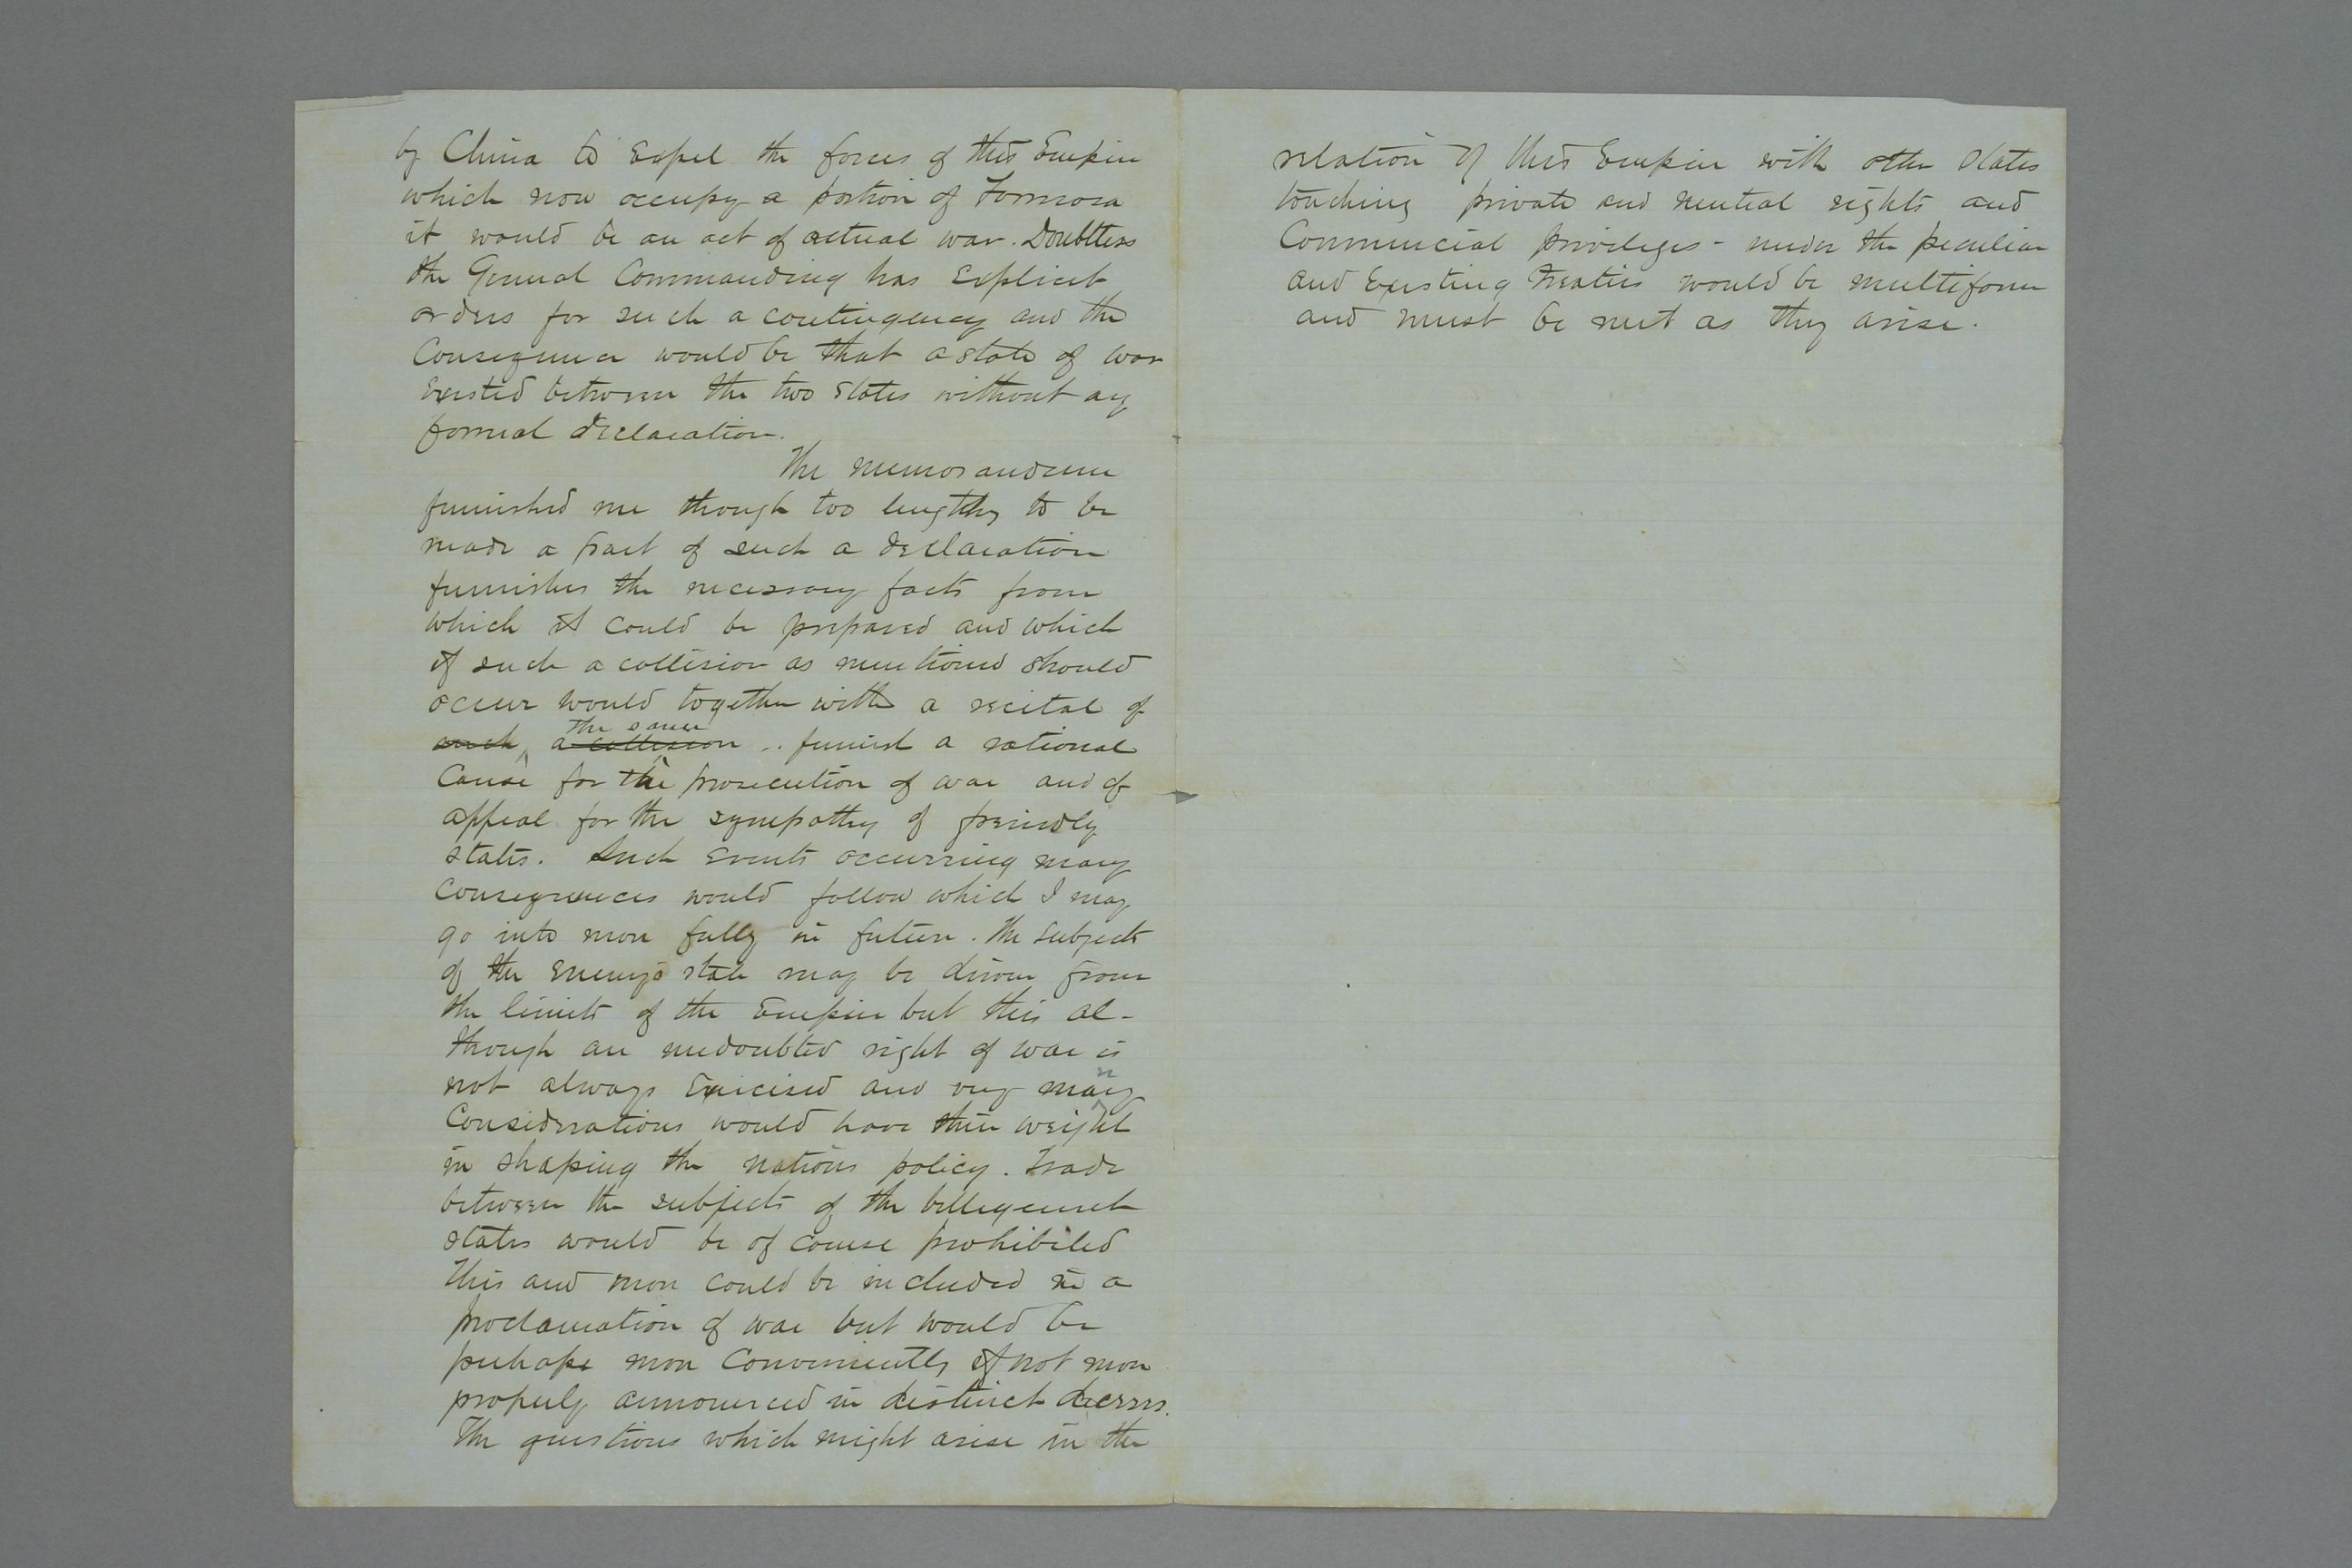 by China to expel the forces of this Empire
which now occupy a portion of Formosa
it would be an act of actual war. Doubtless
the General Commanding has explicit
orders for such a contingency and the
Consequence would be that a state of war
existed between the two states without any
formal declaration.
The memorandum
furnished me though too lengthy to be
made a part of such a declaration
furnishes the necessary facts from
which it could be prepared and which
if such a collision as mentioned should
occur would together with a recital of
the same
such a collision furnish a rational
Cause for the prosecution of war and of
appeal for the sympathy of friendly
states. Such events occurring many
consequences would follow which I may
go into more fully in future. The subjects
of the enemy's state may be driven from
the limits of the Empire but this al-
though an undoubted right of war is
not always exercised and very many
Considerations would have their weight
in shaping the nations policy. Trade
between the subjects of the belligerent
states would be of course prohibited
This and more could be included in a
proclamation of war but would be
perhaps more conveniently if not more
properly announced in distinct decrees.
The questions which might arise in the
relation of this Empire with other states
touching private and neutral rights and
Commercial privileges - under the peculiar
and existing treaties would be multiform
and must be met as they arise.